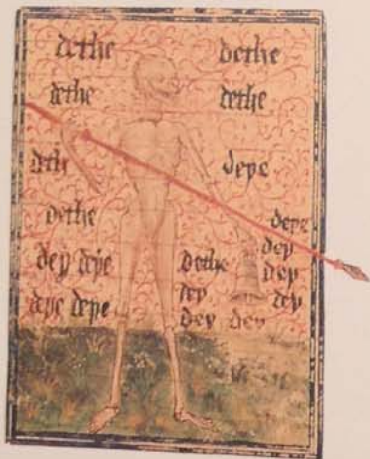 dethe dethe
dethe dethe
deth depe
dethe depe
dey depe dethe dey
depe depe dey dey
dey dey dey